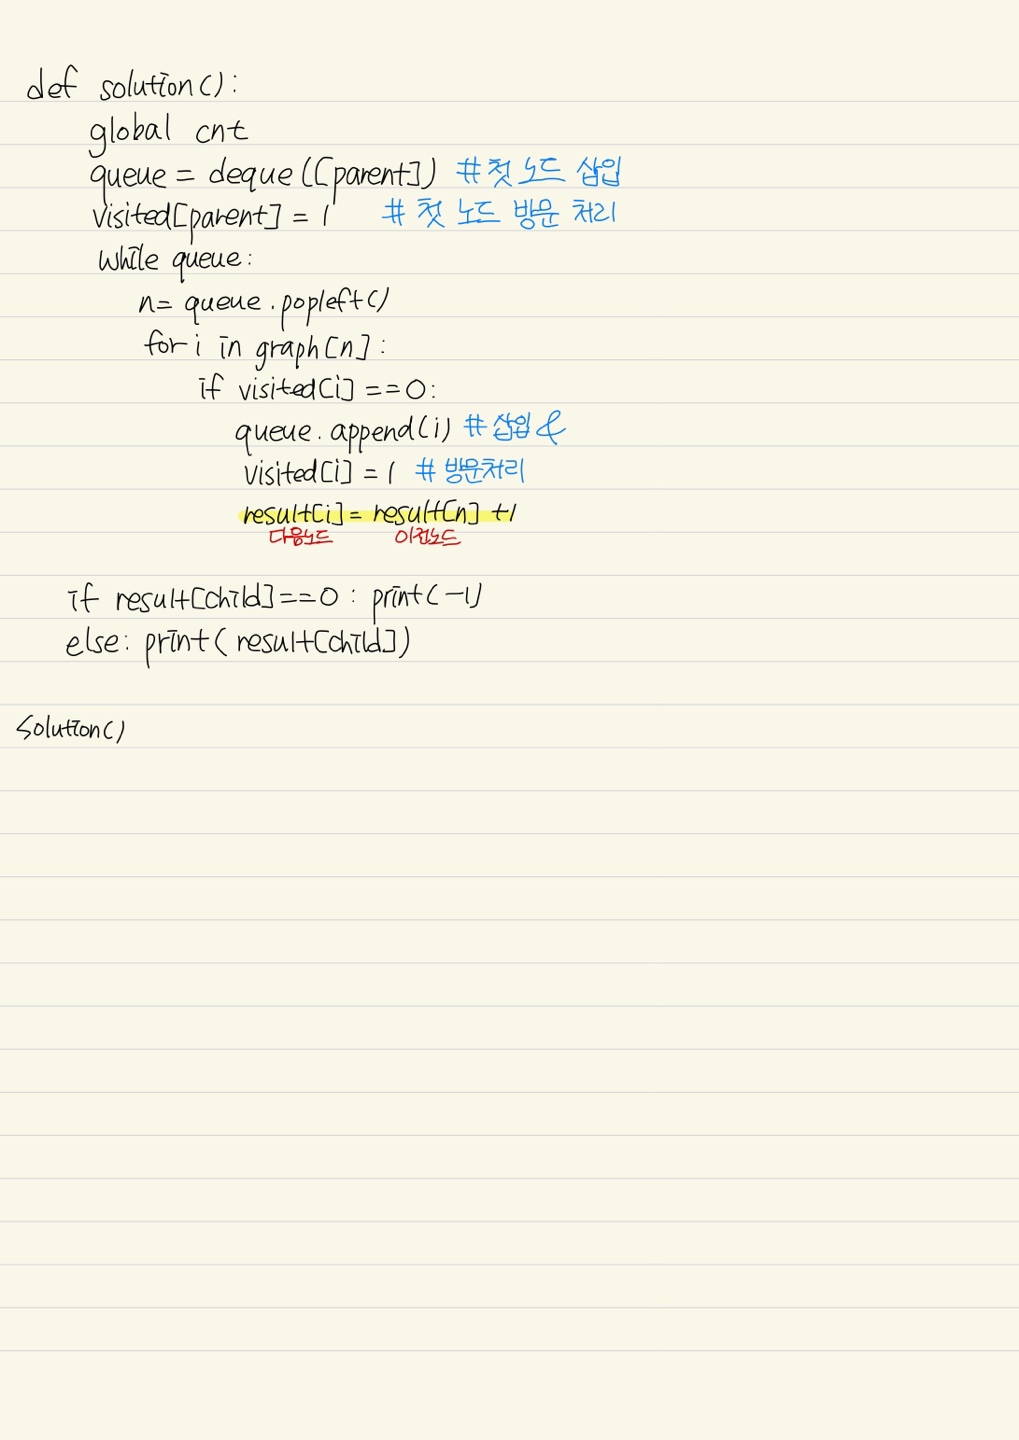 def solution():
global cnt
queue = deque([parent]) #첫 노드 삽입
visited[parent] = 1 # 첫 노드 방문 처리
while queue:
n= queue.popleft()
for i in graph[n]:
if visited[i] ==0:
queue.append(i) #삽입 &
visited[i] = 1 # 방문처리
result[i] = result[n] +1
다음노드 이전노드
if result[child]==0 : print(-1)
else: print( result[child])
solution()